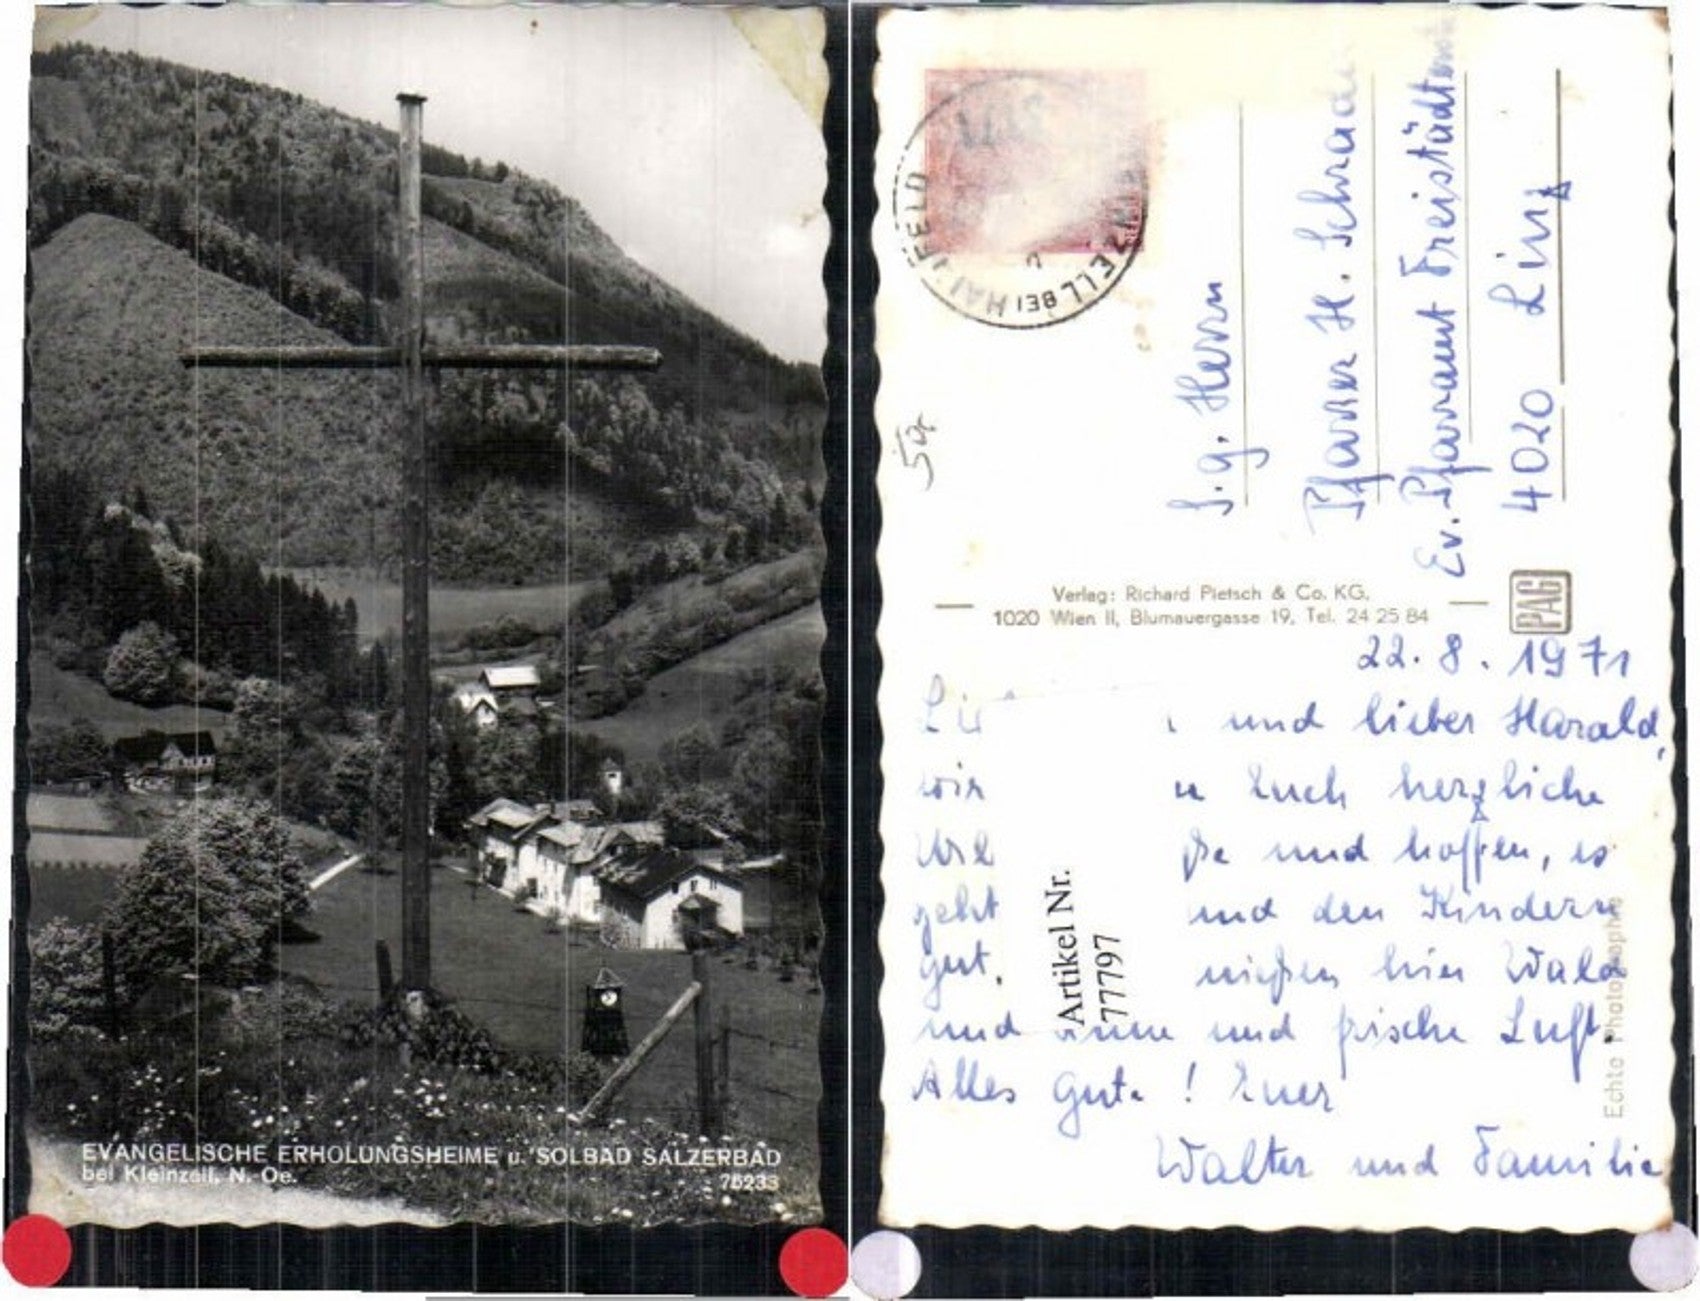 EVANGELISCHE ERHOLUNGSHEIME u. SOLBAD SALZERBAD
bei Kleinzell, N.-Oe.
75233
ZELL BEI HAI FELD
S. g. Herrn
Pfarrer H. Schrade
Ev. Pfarramt Freistädter
4020 Linz
Verlag: Richard Pietsch & Co. KG.
1020 Wien II, Blumauergasse 19, Tel. 24 25 84
PAG
22.8.1971
und lieber Harald,
wir Euch herzliche
und hoffen, es
geht und den Kindern
gut. hier Wald
und und frische Luft.
Alles Gute! Euer
Walter und Familie
Artikel Nr.
77797
Echte Photographie